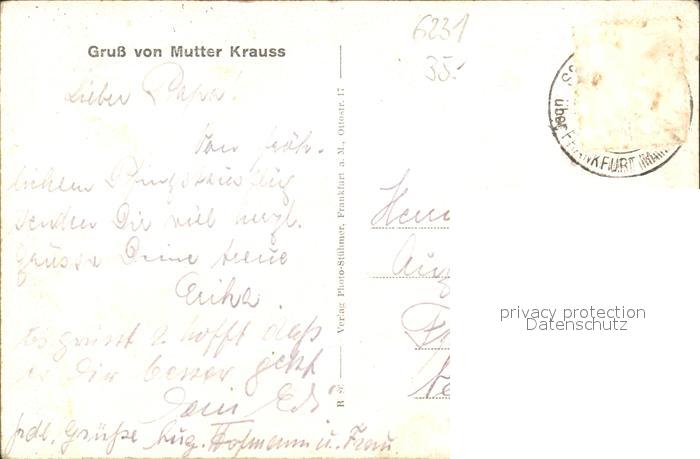 Gruß von Mutter Krauss
6231
35.-
über FRANKFURT (MAIN)
Lieber Papa!
Von fröh-
lichem Pfingstausflug
senden Dir viel
Grüsse Deine treue
Erika.
Es grüsst u. hofft daß
es Dir besser geht
Dein Edi
frdl. Grüße Aug. Hofmann u. Frau.
Verlag Photo-Stühmer, Frankfurt a. M., Ottostr. 17
privacy protection
Datenschutz